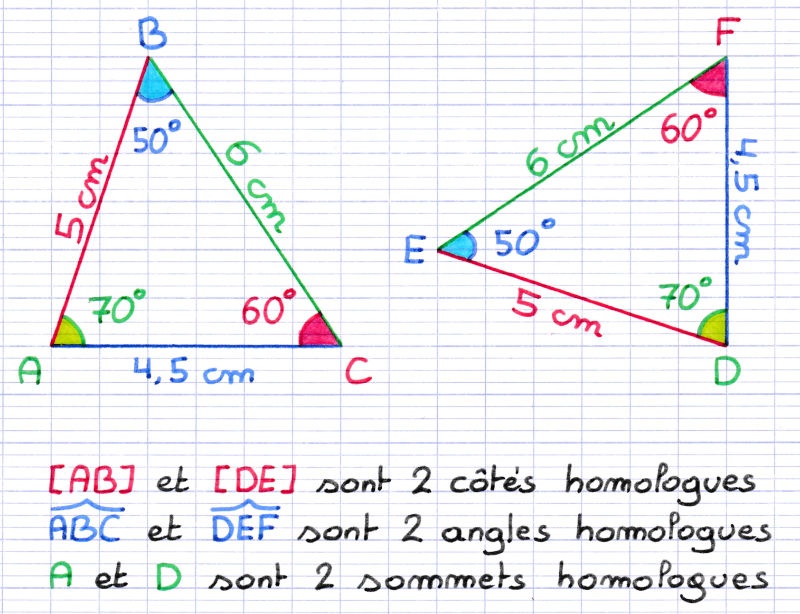 B
50°
5 cm
6 cm
70°
60°
A
4,5 cm
C
F
60°
6 cm
4,5 cm
E
50°
5 cm
70°
D
[AB] et [DE] sont 2 côtés homologues
ABC et DEF sont 2 angles homologues
A et D sont 2 sommets homologues